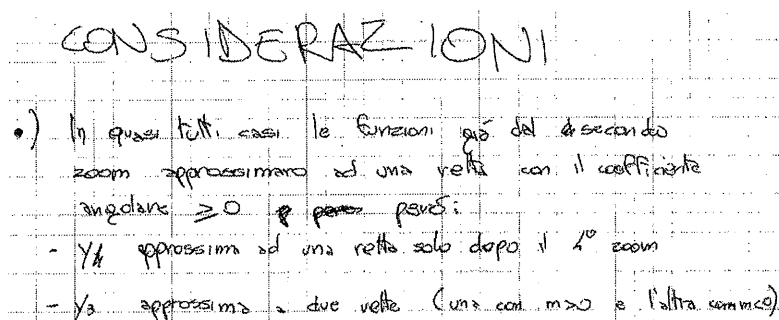 CONSIDERAZIONI
•) In quasi tutti casi le funzioni già dal secondo
zoom approssimano ad una retta con il coefficiente
angolare ≥0 però:
- Y4 approssima ad una retta solo dopo il 4° zoom
- Y3 approssima a due rette (una con m>0 e l'altra con m<0)